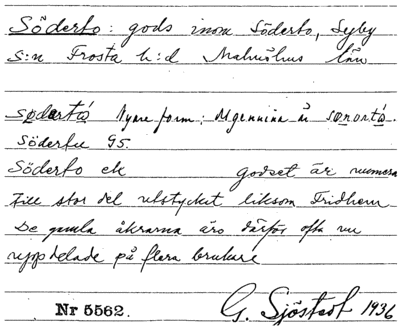 Söderto: gods inom Söderto, Seby
s:n Frosta h:d Malmöhus län
sødertå Nyare form; Mgenuina är sørortå
Söderto G5.
Söderto ek godset är numera
till stor del utstycket liksom Fridhem
De gamla åkrarna äro därför ofta nu
uppdelade på flera brukare
Nr 5562. G. Sjöstedt 1936